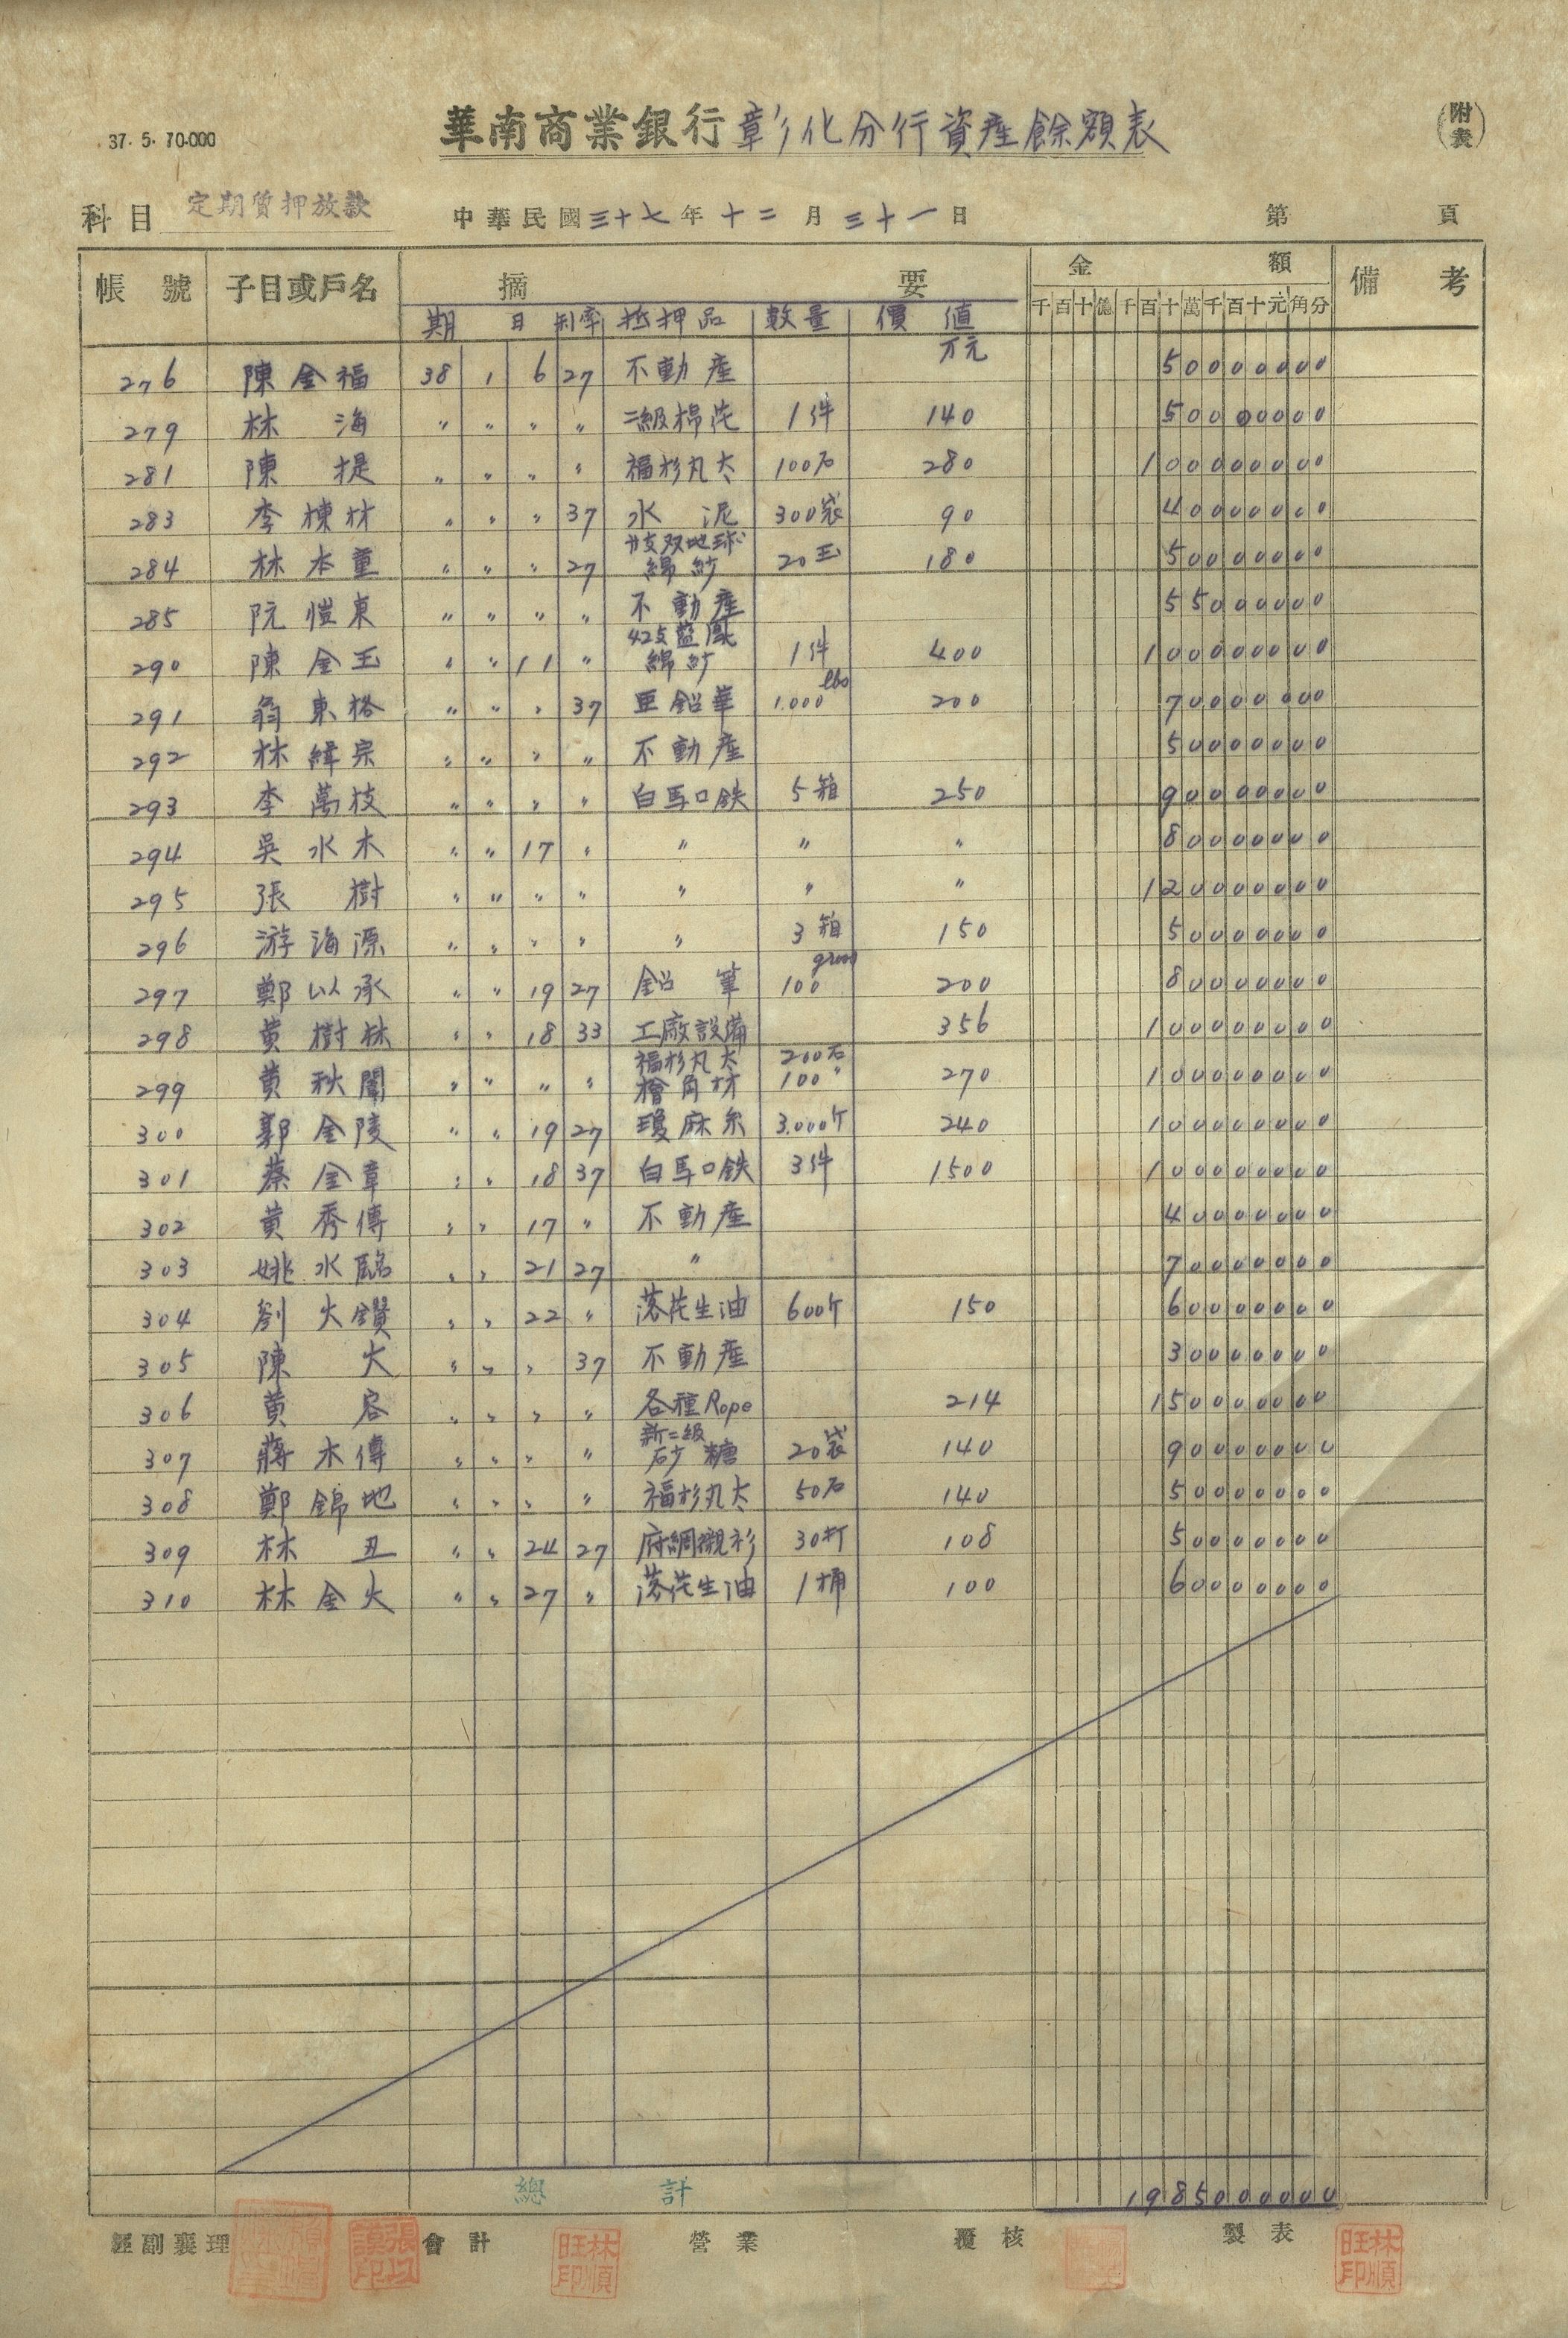 37. 5. 70.000
華南商業銀行彰化分行資產餘額表
(附表)
科目 定期質押放款 中華民國三十七年十二月三十一日 第 頁
帳號 子目或戶名 摘要 金額 備考
期日 利率 抵押品 數量 價值 千百十億千百十萬千百十元角分
万元
276 陳金福 38 1 6 27 不動產 50000000
279 林海 〃 〃 〃 〃 二級棉花 1件 140 50000000
281 陳提 〃 〃 〃 〃 福杉丸太 100石 280 100000000
283 李棟材 〃 〃 〃 37 水泥 300袋 90 40000000
284 林本重 〃 〃 〃 27 双地球綿紗 20玉 180 50000000
285 阮愷東 〃 〃 〃 〃 不動產 55000000
290 陳金玉 〃 〃 11 〃 42支藍鳳綿紗 1件 400 100000000
291 翁東格 〃 〃 〃 37 亜鉛華 1.000lbs 200 70000000
292 林緯宗 〃 〃 〃 〃 不動產 50000000
293 李萬枝 〃 〃 〃 〃 白馬口鉄 5箱 250 90000000
294 吳水木 〃 〃 17 〃 〃 〃 〃 80000000
295 張樹 〃 〃 〃 〃 〃 〃 〃 120000000
296 游海源 〃 〃 〃 〃 〃 3箱 150 50000000
297 鄭以承 〃 〃 19 27 鉛筆 100gross 200 80000000
298 黃樹林 〃 〃 18 33 工廠設備 356 100000000
299 黃秋闈 〃 〃 〃 〃 福杉丸太 200石 檜角材 100〃 270 100000000
300 郭金陵 〃 〃 19 27 瓊麻糸 3.000斤 240 100000000
301 蔡金章 〃 〃 18 37 白馬口鉄 3件 1500 100000000
302 黃秀傳 〃 〃 17 〃 不動產 40000000
303 姚水臨 〃 〃 21 27 〃 70000000
304 劉火鑽 〃 〃 22 〃 落花生油 600斤 150 60000000
305 陳火 〃 〃 〃 37 不動產 30000000
306 黃容 〃 〃 〃 〃 各種Rope 214 150000000
307 蔣木傳 〃 〃 〃 〃 新二級砂糖 20袋 140 90000000
308 鄭錦地 〃 〃 〃 〃 福杉丸太 50石 140 50000000
309 林丑 〃 〃 24 27 府綢襯衫 30打 108 50000000
310 林金火 〃 〃 27 〃 落花生油 1桶 100 60000000
總計 1985000000
經副襄理 會計 營業 覆核 製表
林順旺印 林順旺印